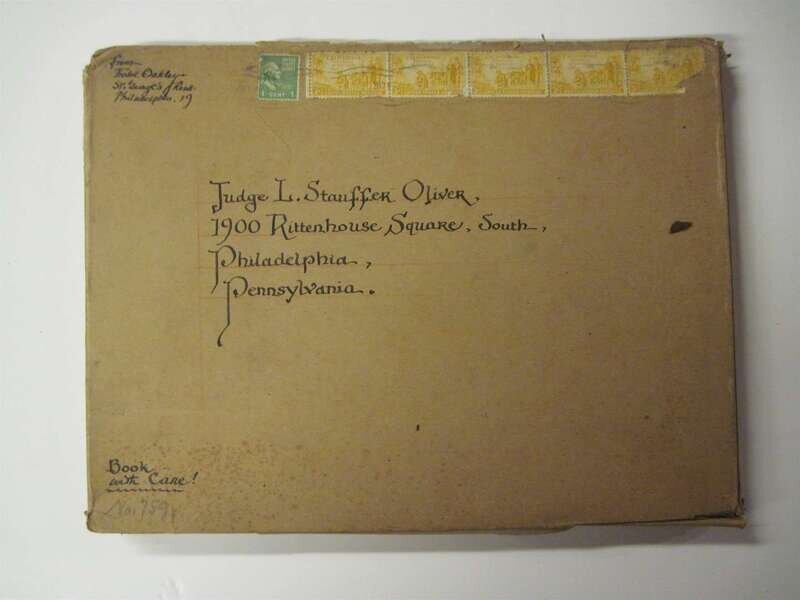 from
Violet Oakley
St. George's Road
Philadelphia, 19
1 CENT 1
CALIFORNIA
Judge L. Stauffer Oliver,
1900 Rittenhouse Square, South,
Philadelphia,
Pennsylvania.
Book
with Care!
No. 759